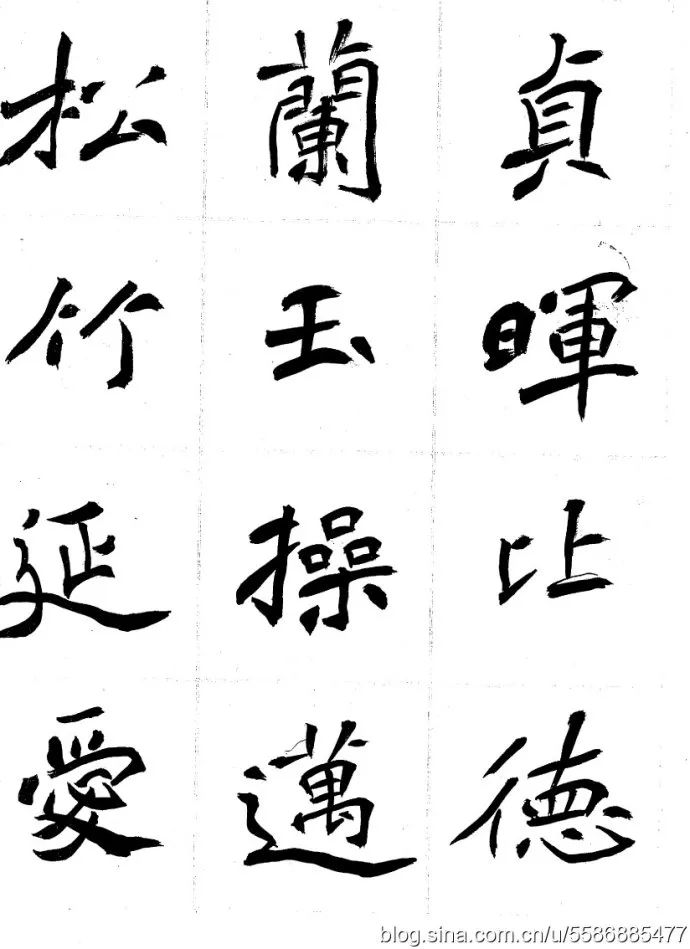 貞暉比德
蘭玉操邁
松竹延愛
blog.sina.com.cn/u/5586885477